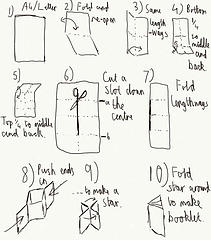 1) A4/Letter
2) Fold and
re-open
3) Same
length
-ways
4) Bottom
1/4
to
middle
and
back.
5)
Top 1/4 to middle
and back.
6) Cut a
slot down
a the
centre
b
7) Fold
lengthways
8) Push ends
in
9)
... to make a
star.
10) Fold
star around
to make
booklet.